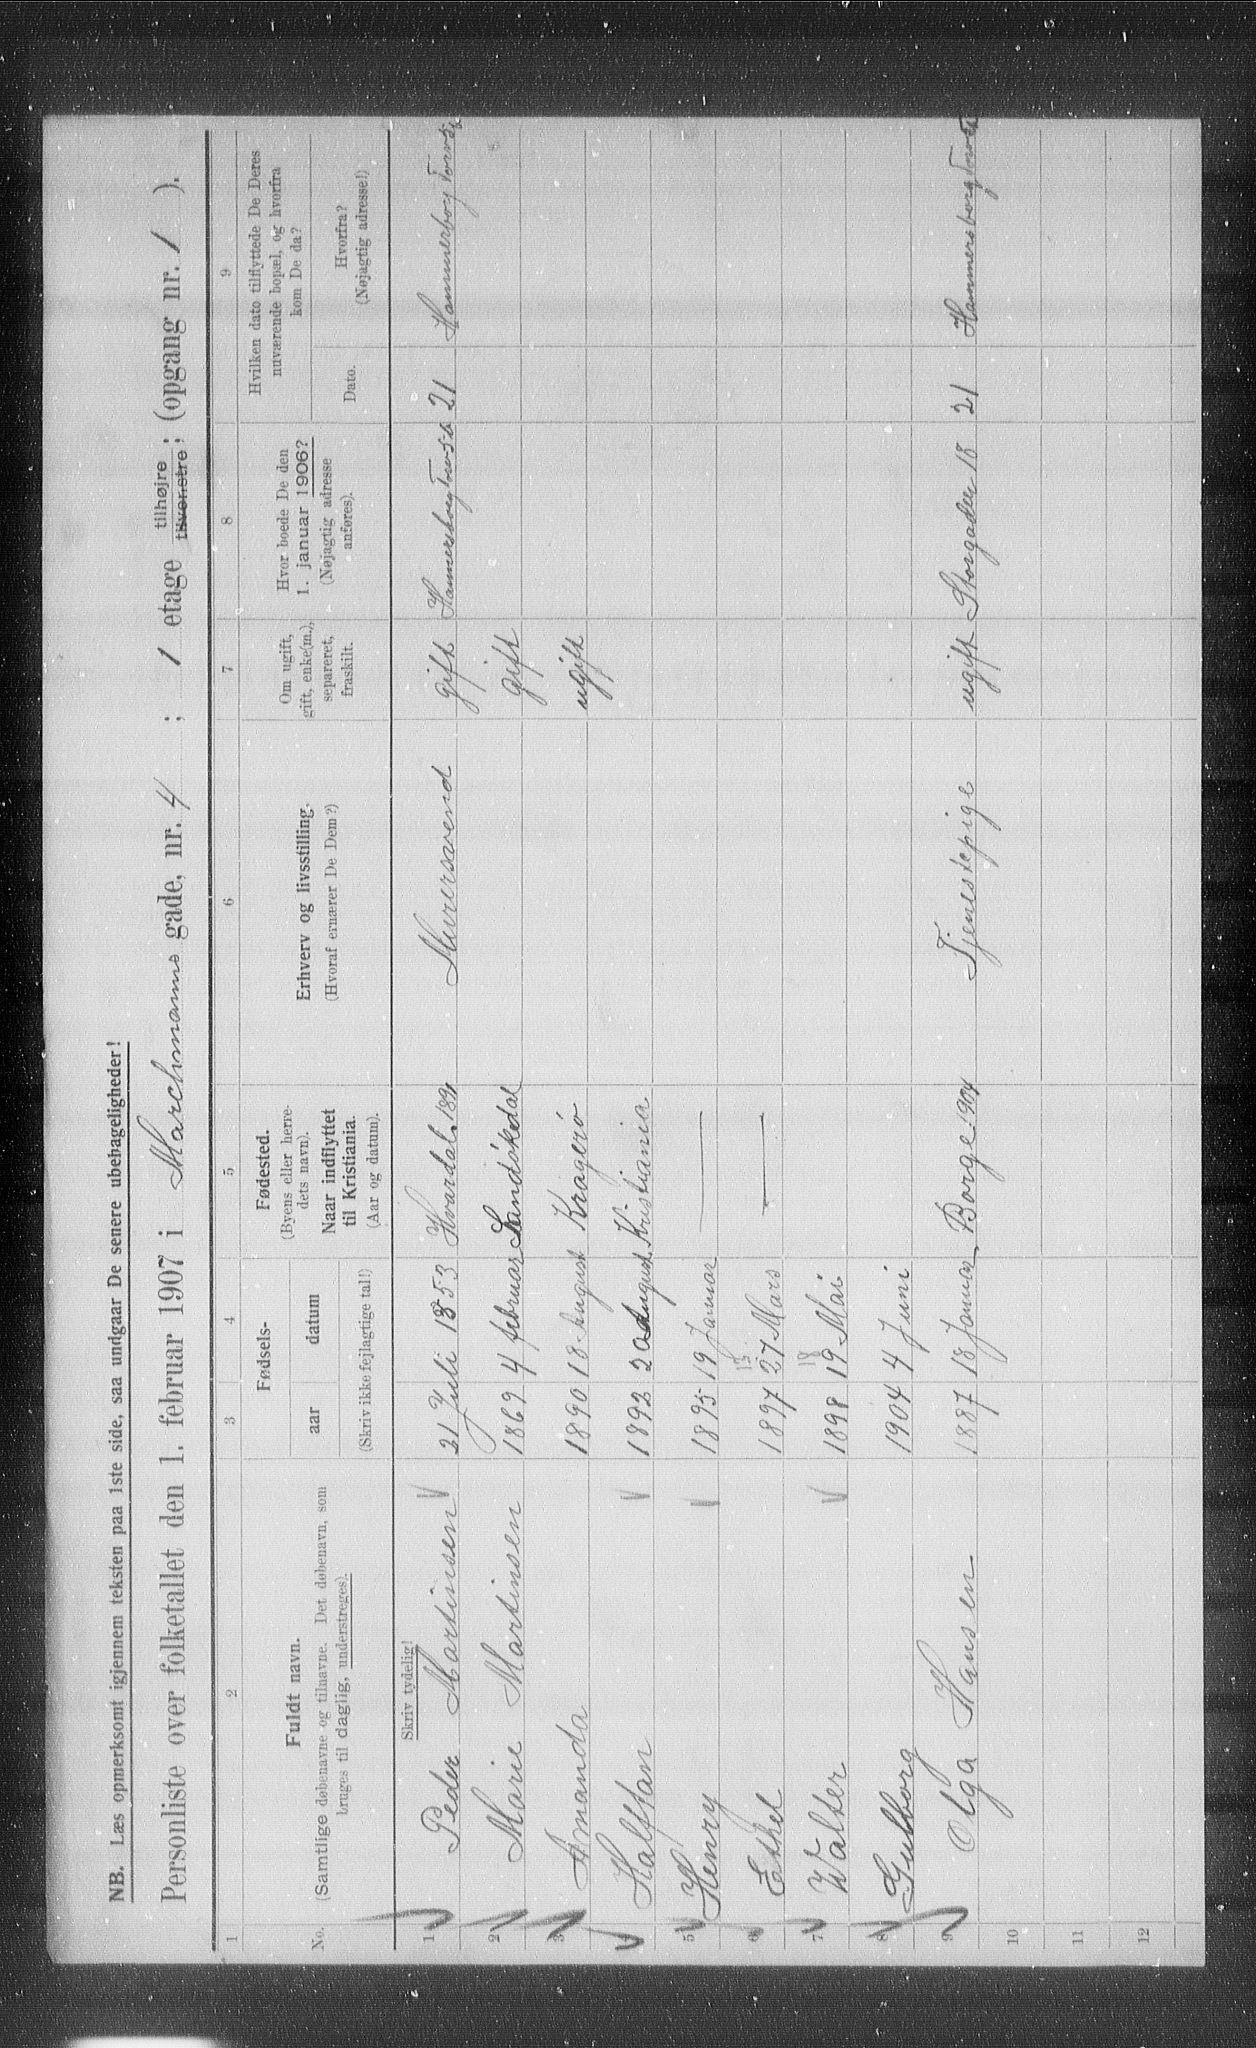 NB. Læs opmerksomt igjennem teksten paa 1ste side, saa undgaar De senere ubehageligheder!
Personliste over folketallet den 1. februar 1907 i Marchmanns gade, nr. 4 ; 1 etage tilhøjre ; (opgang nr. 1 ).
tilvenstre ;
1 2 3 4 5 6 7 8 9
No.
Fuldt navn.
(Samtlige døbenavne og tilnavne. Det døbenavn, som
bruges til daglig, understreges).
Fødsels-
aar datum
(Skriv ikke fejlagtige tal!)
Fødested.
(Byens eller herre-
dets navn).
Naar indflyttet
til Kristiania.
(Aar og datum).
Erhverv og livsstilling.
(Hvoraf ernærer De Dem?)
Om ugift,
gift, enke(m.),
separeret,
fraskilt.
Hvor boede De den
1. januar 1906?
(Nøjagtig adresse
anføres).
Hvilken dato tilflyttede De Deres
nuværende bopæl, og hvorfra
kom De da?
Dato.
Hvorfra?
(Nøjagtig adresse!)
Skriv tydelig!
1 Peder Martinsen 21 Juli 1853 Hvardal. Murersvend gift 21
2 Marie Martinsen 1869 4 februar Sandökedal gift
3 Amanda 1890 18 August Kragerö ugift
Halffan 1892 20 August Kristiania
5 Henry 1895 19 Januar —
6 Ethel 1897 27 Mars —
13
7 Walter 1898 19 Mai
18
8 Gulborg 1904 4 Juni
9 Olga Hansen 1887 18 Januar Borge 1904 Tjenestepige ugift Storgaden 18 21 Hammersborg
10
11
12